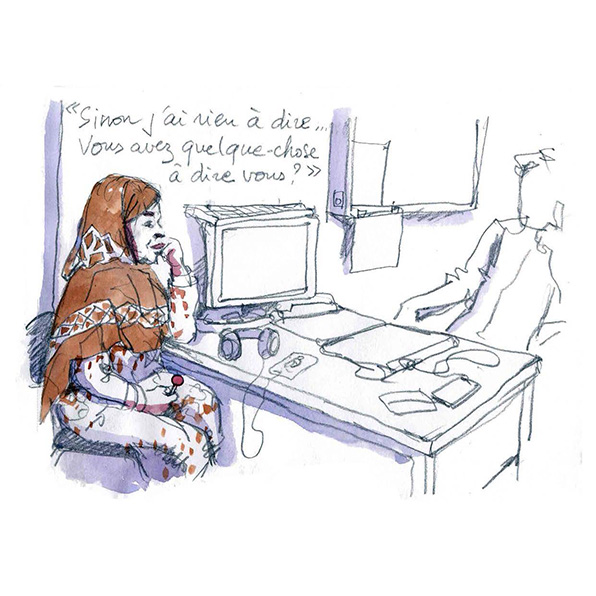 « Sinon j'ai rien à dire...
Vous avez quelque-chose
à dire vous ? »